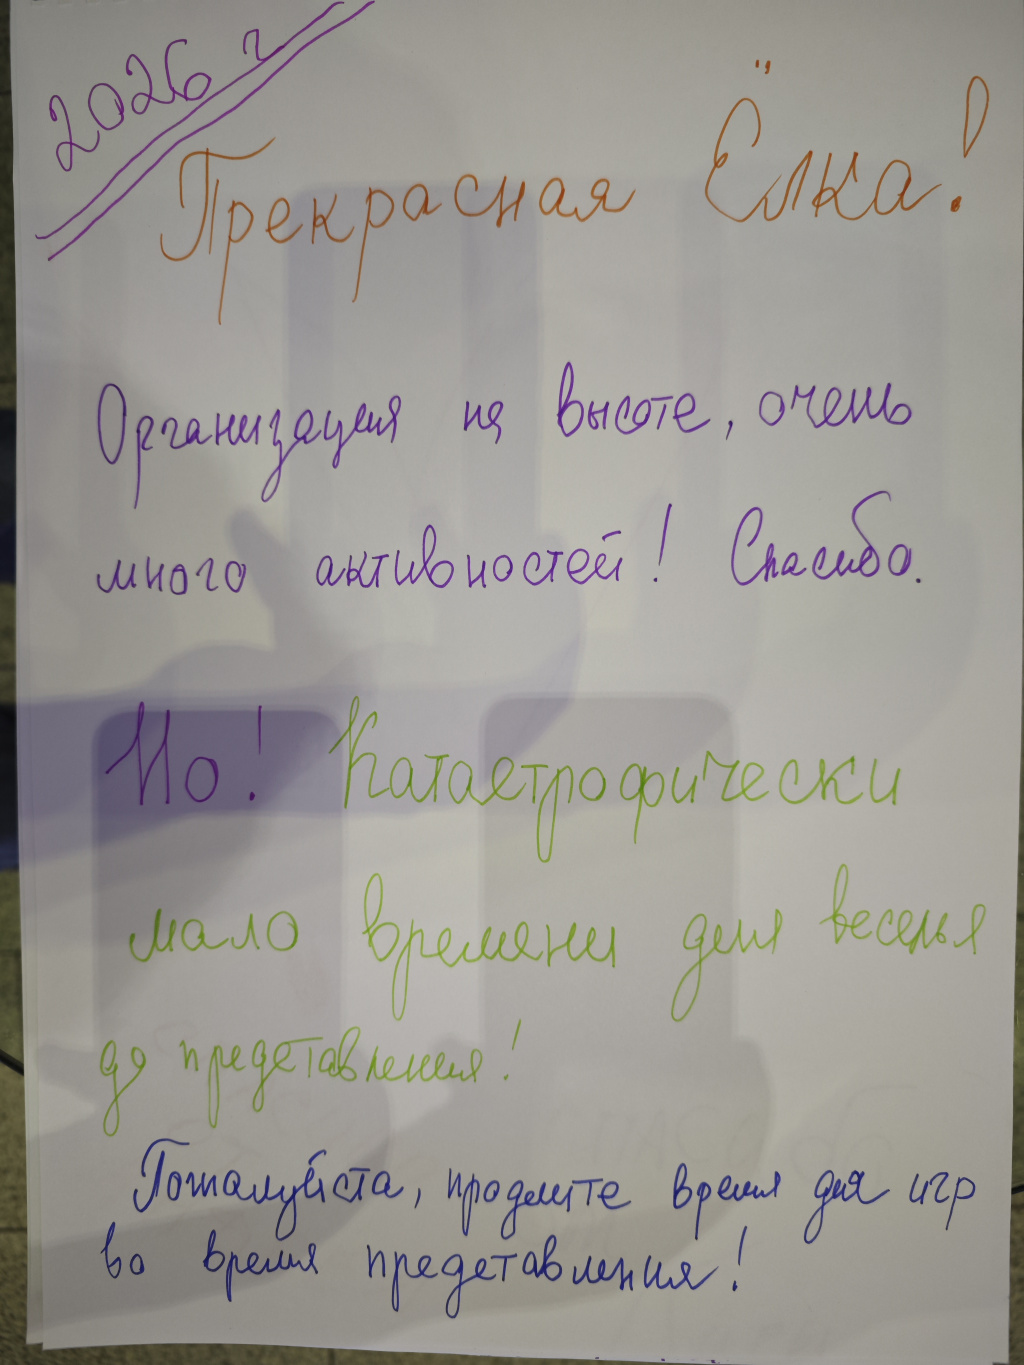 2026 г
Прекрасная Ёлка!
Организация на высоте, очень
много активностей! Спасибо.
Но! Катастрофически
мало времени для веселья
до представления!
Пожалуйста, продлите время для игр
во время представления!